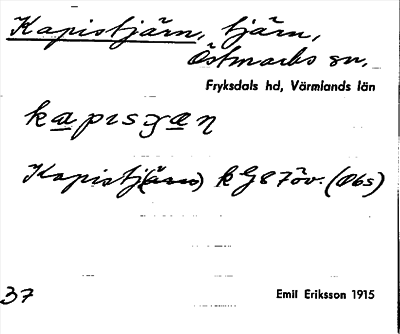 Kapistjärn, tjärn,
Östmarks sn,
Fryksdals hd, Värmlands län
kapisʒæɳ
Kapistj(ärn) kG87öv. (Obs)
37
Emil Eriksson 1915